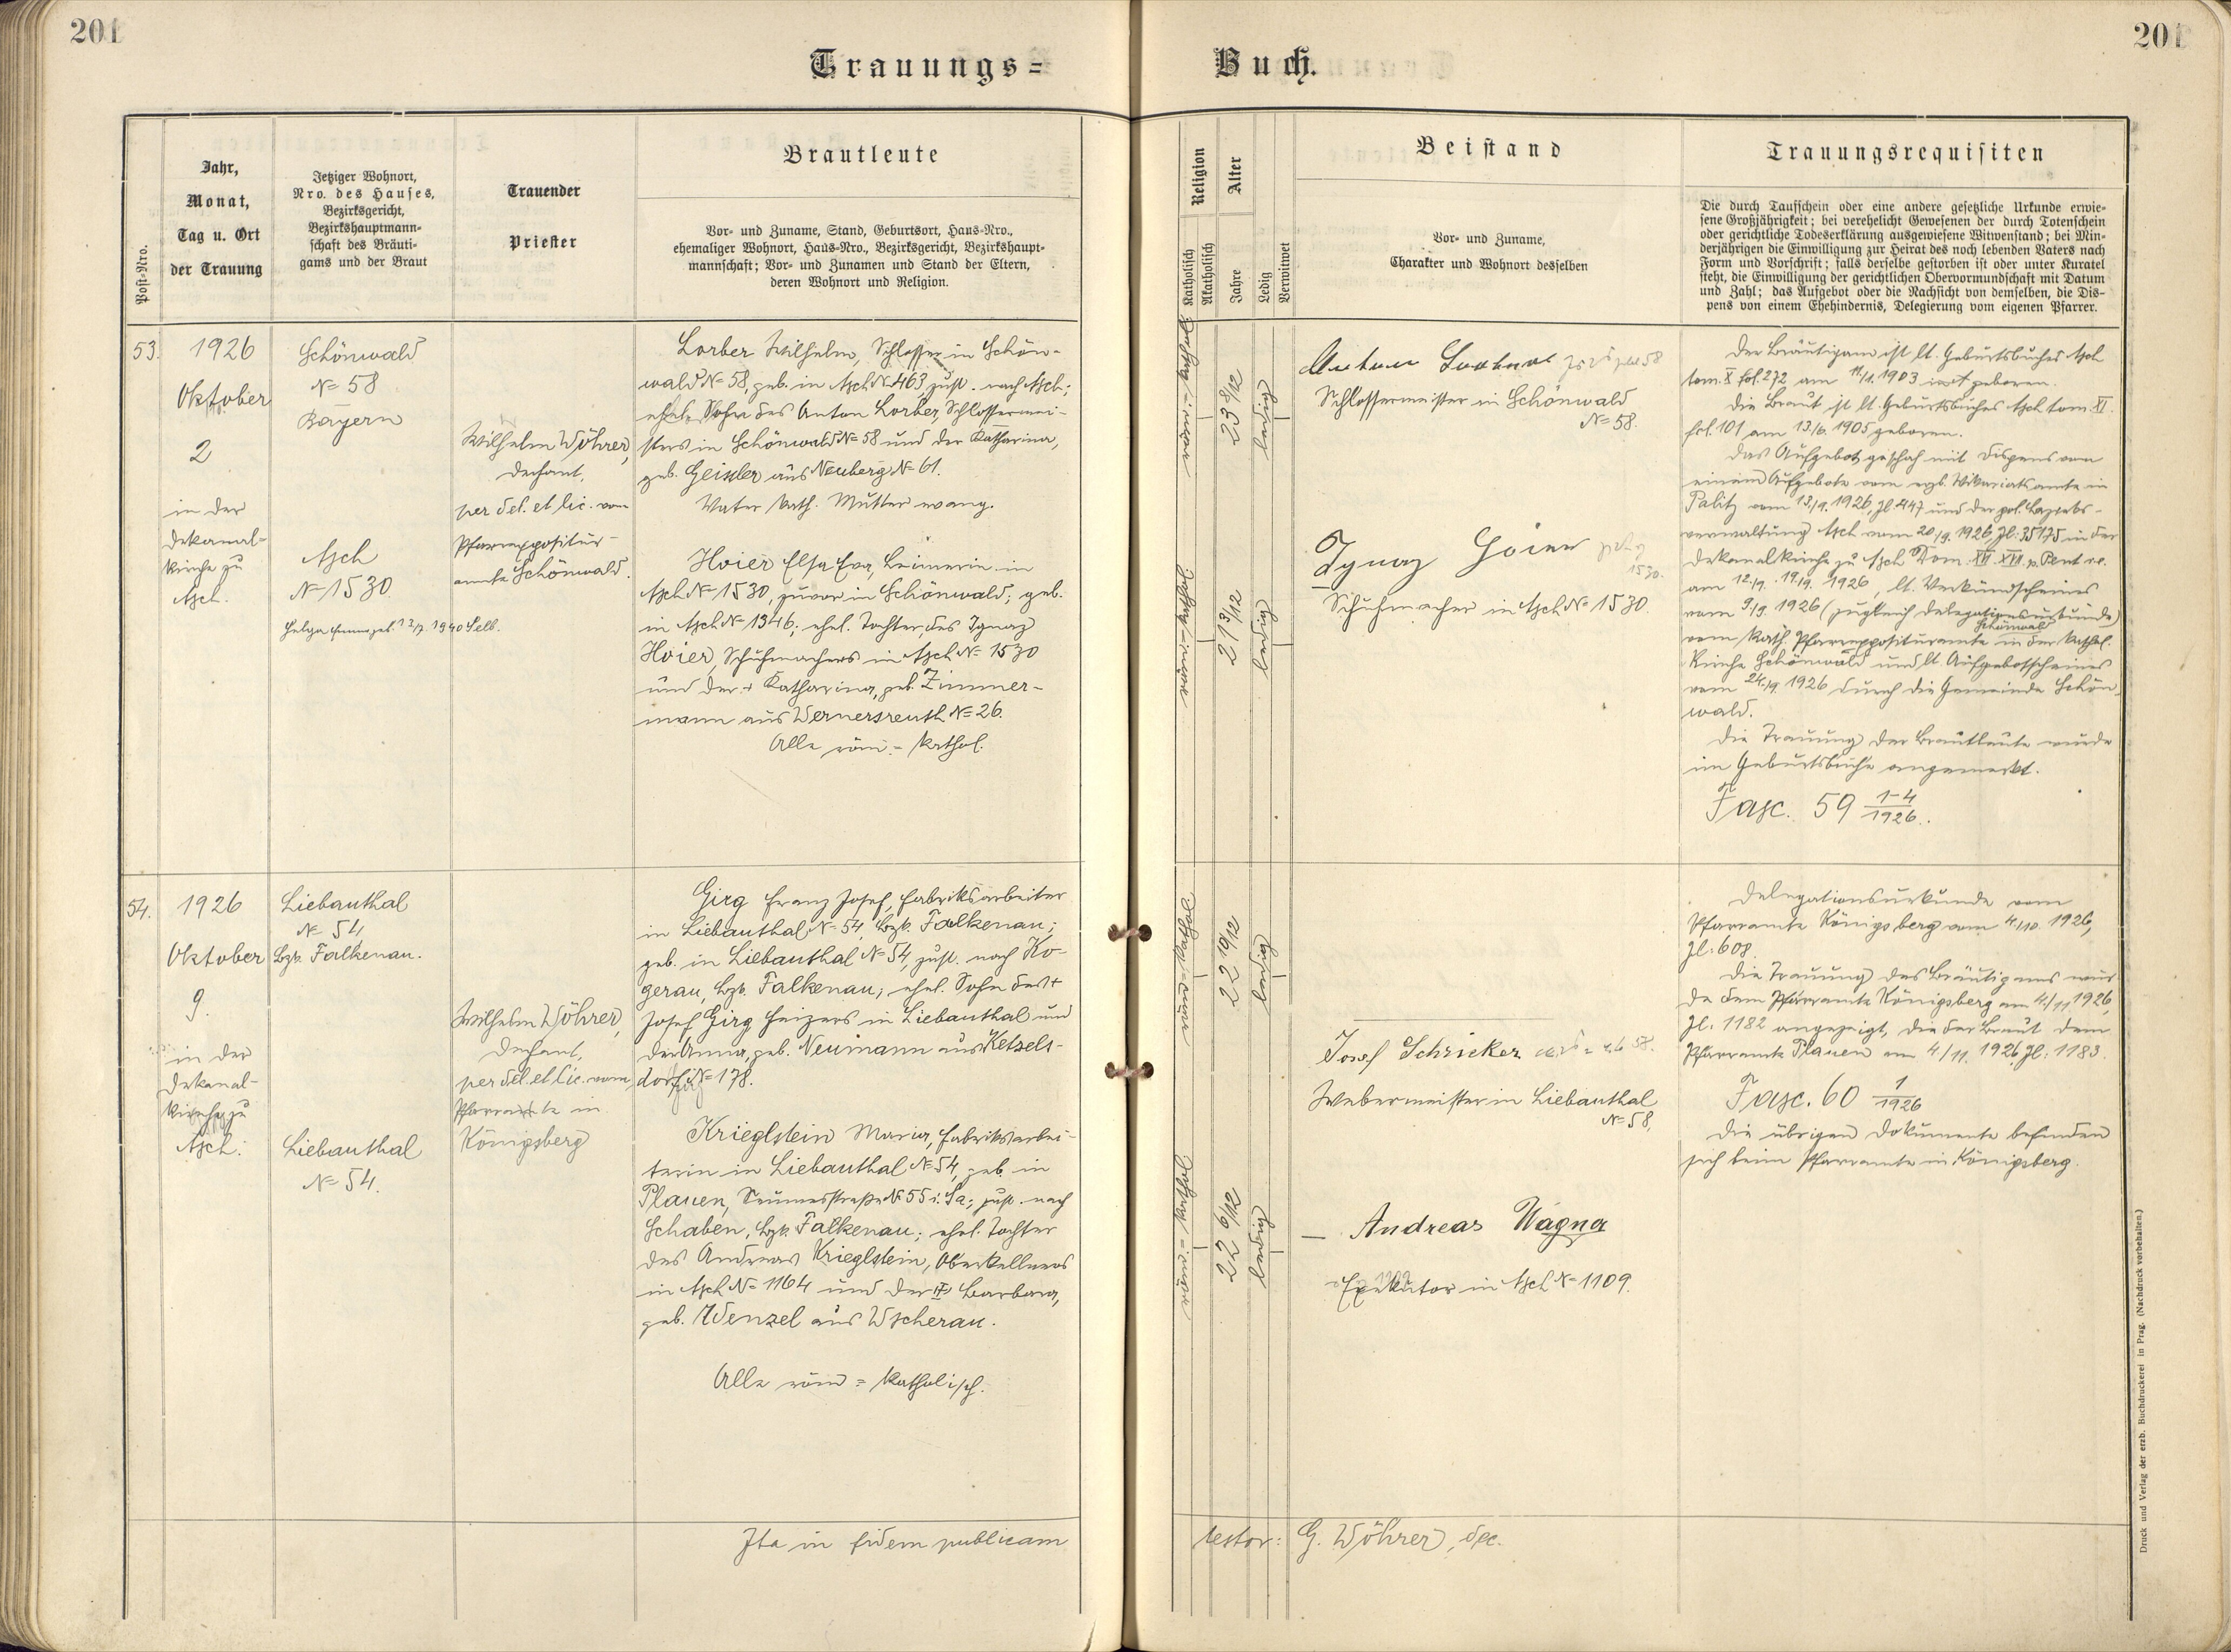 201
Trauungs=
Post-Nro.
Jahr,
Monat,
Tag u. Ort
der Trauung
Jetziger Wohnort,
Nro. des Hauses,
Bezirksgericht,
Bezirkshauptmann-
schaft des Bräuti-
gams und der Braut
Trauender
Priester
Brautleute
Vor- und Zuname, Stand, Geburtsort, Haus-Nro.,
ehemaliger Wohnort, Haus-Nro., Bezirksgericht, Bezirkshaupt-
mannschaft; Vor- und Zunamen und Stand der Eltern,
deren Wohnort und Religion.
53.
1926
Oktober
2
in der
Dekanal-
kirche zu
Asch.
Schönwald
N= 58
Bayern
Asch
N= 1530
Wilhelm Wöhrer,
Dechant,
per del. et lic. vom
Pfarrexpositur-
amte Schönwald.
Lorber Wilhelm, Schlosser in Schön-
wald N= 58, geb. in Asch N= 463, zust. nach Asch;
ehel. Sohn des Anton Lorber, Schlossermei-
sters in Schönwald N= 58 und der Katharina,
geb. Geißler aus Neuberg N= 61.
Vater kath. Mutter evang.
Hoier Elsa Eva, in
Asch N= 1530, zuvor in Schönwald; geb.
in Asch N= 1346; ehel. Tochter des Ignaz
Hoier, Schuhmachers in Asch N= 1530
und der + Katharina, geb. Zimmer-
mann aus Wernersreuth N= 26.
Alle röm.= kathol.
54.
1926
Oktober
9.
in der
Dekanal-
kirche zu
Asch.
Liebauthal
N= 54,
Bzk. Falkenau.
Liebauthal
N= 54.
Wilhelm Wöhrer,
Dechant,
per del. et lic. vom
Pfarramte in
Königsberg
Girg Franz Josef, Fabriksarbeiter
in Liebauthal N= 54, Bzk. Falkenau;
geb. in Liebauthal N= 54, zust. nach Ko-
gerau, Bzk. Falkenau; ehel. Sohn des +
Josef Girg, Heizers in Liebauthal und
der Anna, geb. Neumann aus Ketzels-
dorf N= 178.
Krieglstein Maria, Fabriksarbei-
terin in Liebauthal N= 54, geb. in
Plauen, Seumestraße N= 55 i. Sa.; zust. nach
Schaben, Bzk. Falkenau; ehel. Tochter
des Andreas Krieglstein, Oberkellners
in Asch N= 1164 und der + Barbara,
geb. Wenzel aus Wscherau.
Alle röm = katholisch.
Ita in fidem publicam
201
Buch.
Religion
Katholisch
Akatholisch
Alter
Jahre
Ledig
Verwitwet
Beistand
Vor- und Zuname,
Charakter und Wohnort desselben
Trauungsrequisiten
Die durch Taufschein oder eine andere gesetzliche Urkunde erwie-
sene Großjährigkeit; bei verehelicht Gewesenen der durch Totenschein
oder gerichtliche Todeserklärung ausgewiesene Witwenstand; bei Min-
derjährigen die Einwilligung zur Heirat des noch lebenden Vaters nach
Form und Vorschrift; falls derselbe gestorben ist oder unter Kuratel
steht, die Einwilligung der gerichtlichen Obervormundschaft mit Datum
und Zahl; das Aufgebot oder die Nachsicht von demselben, die Dis-
pens von einem Ehehindernis, Delegierung vom eigenen Pfarrer.
römi = kathol.
23 8/12
ledig
Anton Lorber
Schlossermeister in Schönwald
N= 58.
römi = kathol.
21 3/12
ledig
Ignaz Hoier
1530.
Schuhmacher in Asch N= 1530.
Der Bräutigam ist lt. Geburtsbuches Asch
tom. X fol. 272 am 11/1. 1903 geboren.
Die Braut ist lt. Geburtsbuches Asch tom. XI.
fol. 101 am 13/6. 1905 geboren.
Das Aufgebot geschah mit Dispens von
einem Aufgebote vom erzb. Vikariatsamte in
Palitz vom 13./9. 1926, Zl. 447 und der pol. Bezirks-
verwaltung Asch vom 20/9. 1926 Zl: 35175 in der
Dekanalkirche zu Asch Dom. XV. XVI. p. Pent rc.
am 12./9. 19./9. 1926, lt. Verkündscheines
vom 9/9. 1926 (zugleich Delegationsurkunde)
Schönwald
vom kath. Pfarrexposituramte in der kathol.
Kirche Schönwald und lt. Aufgebotscheines
vom 24./9. 1926 durch die Gemeinde Schön-
wald.
Die Trauung der Brautleute wurde
im Geburtsbuche angemerkt.
Fasc. 59 1-4/1926.
römi = kathol.
22 10/12
ledig
Josef Schricker
Webermeister in Liebauthal
N= 58,
römi = kathol.
22 6/12
ledig
Andreas Wagner
Exekutor in Asch N= 1109.
Delegationsurkunde vom
Pfarramte Königsberg vom 4./10. 1926,
Zl: 608.
Die Trauung des Bräutigams wur-
de dem Pfarramte Königsberg am 4./11 1926,
Zl. 1182 angezeigt, die der Braut dem
Pfarramte Plauen am 4/11. 1926, Zl: 1183.
Fasc. 60 1/1926
Die übrigen Dokumente befinden
sich beim Pfarramte in Königsberg.
testor: G. Wöhrer, dec.
Druck und Verlag der erzb. Buchdruckerei in Prag. (Nachdruck vorbehalten.)